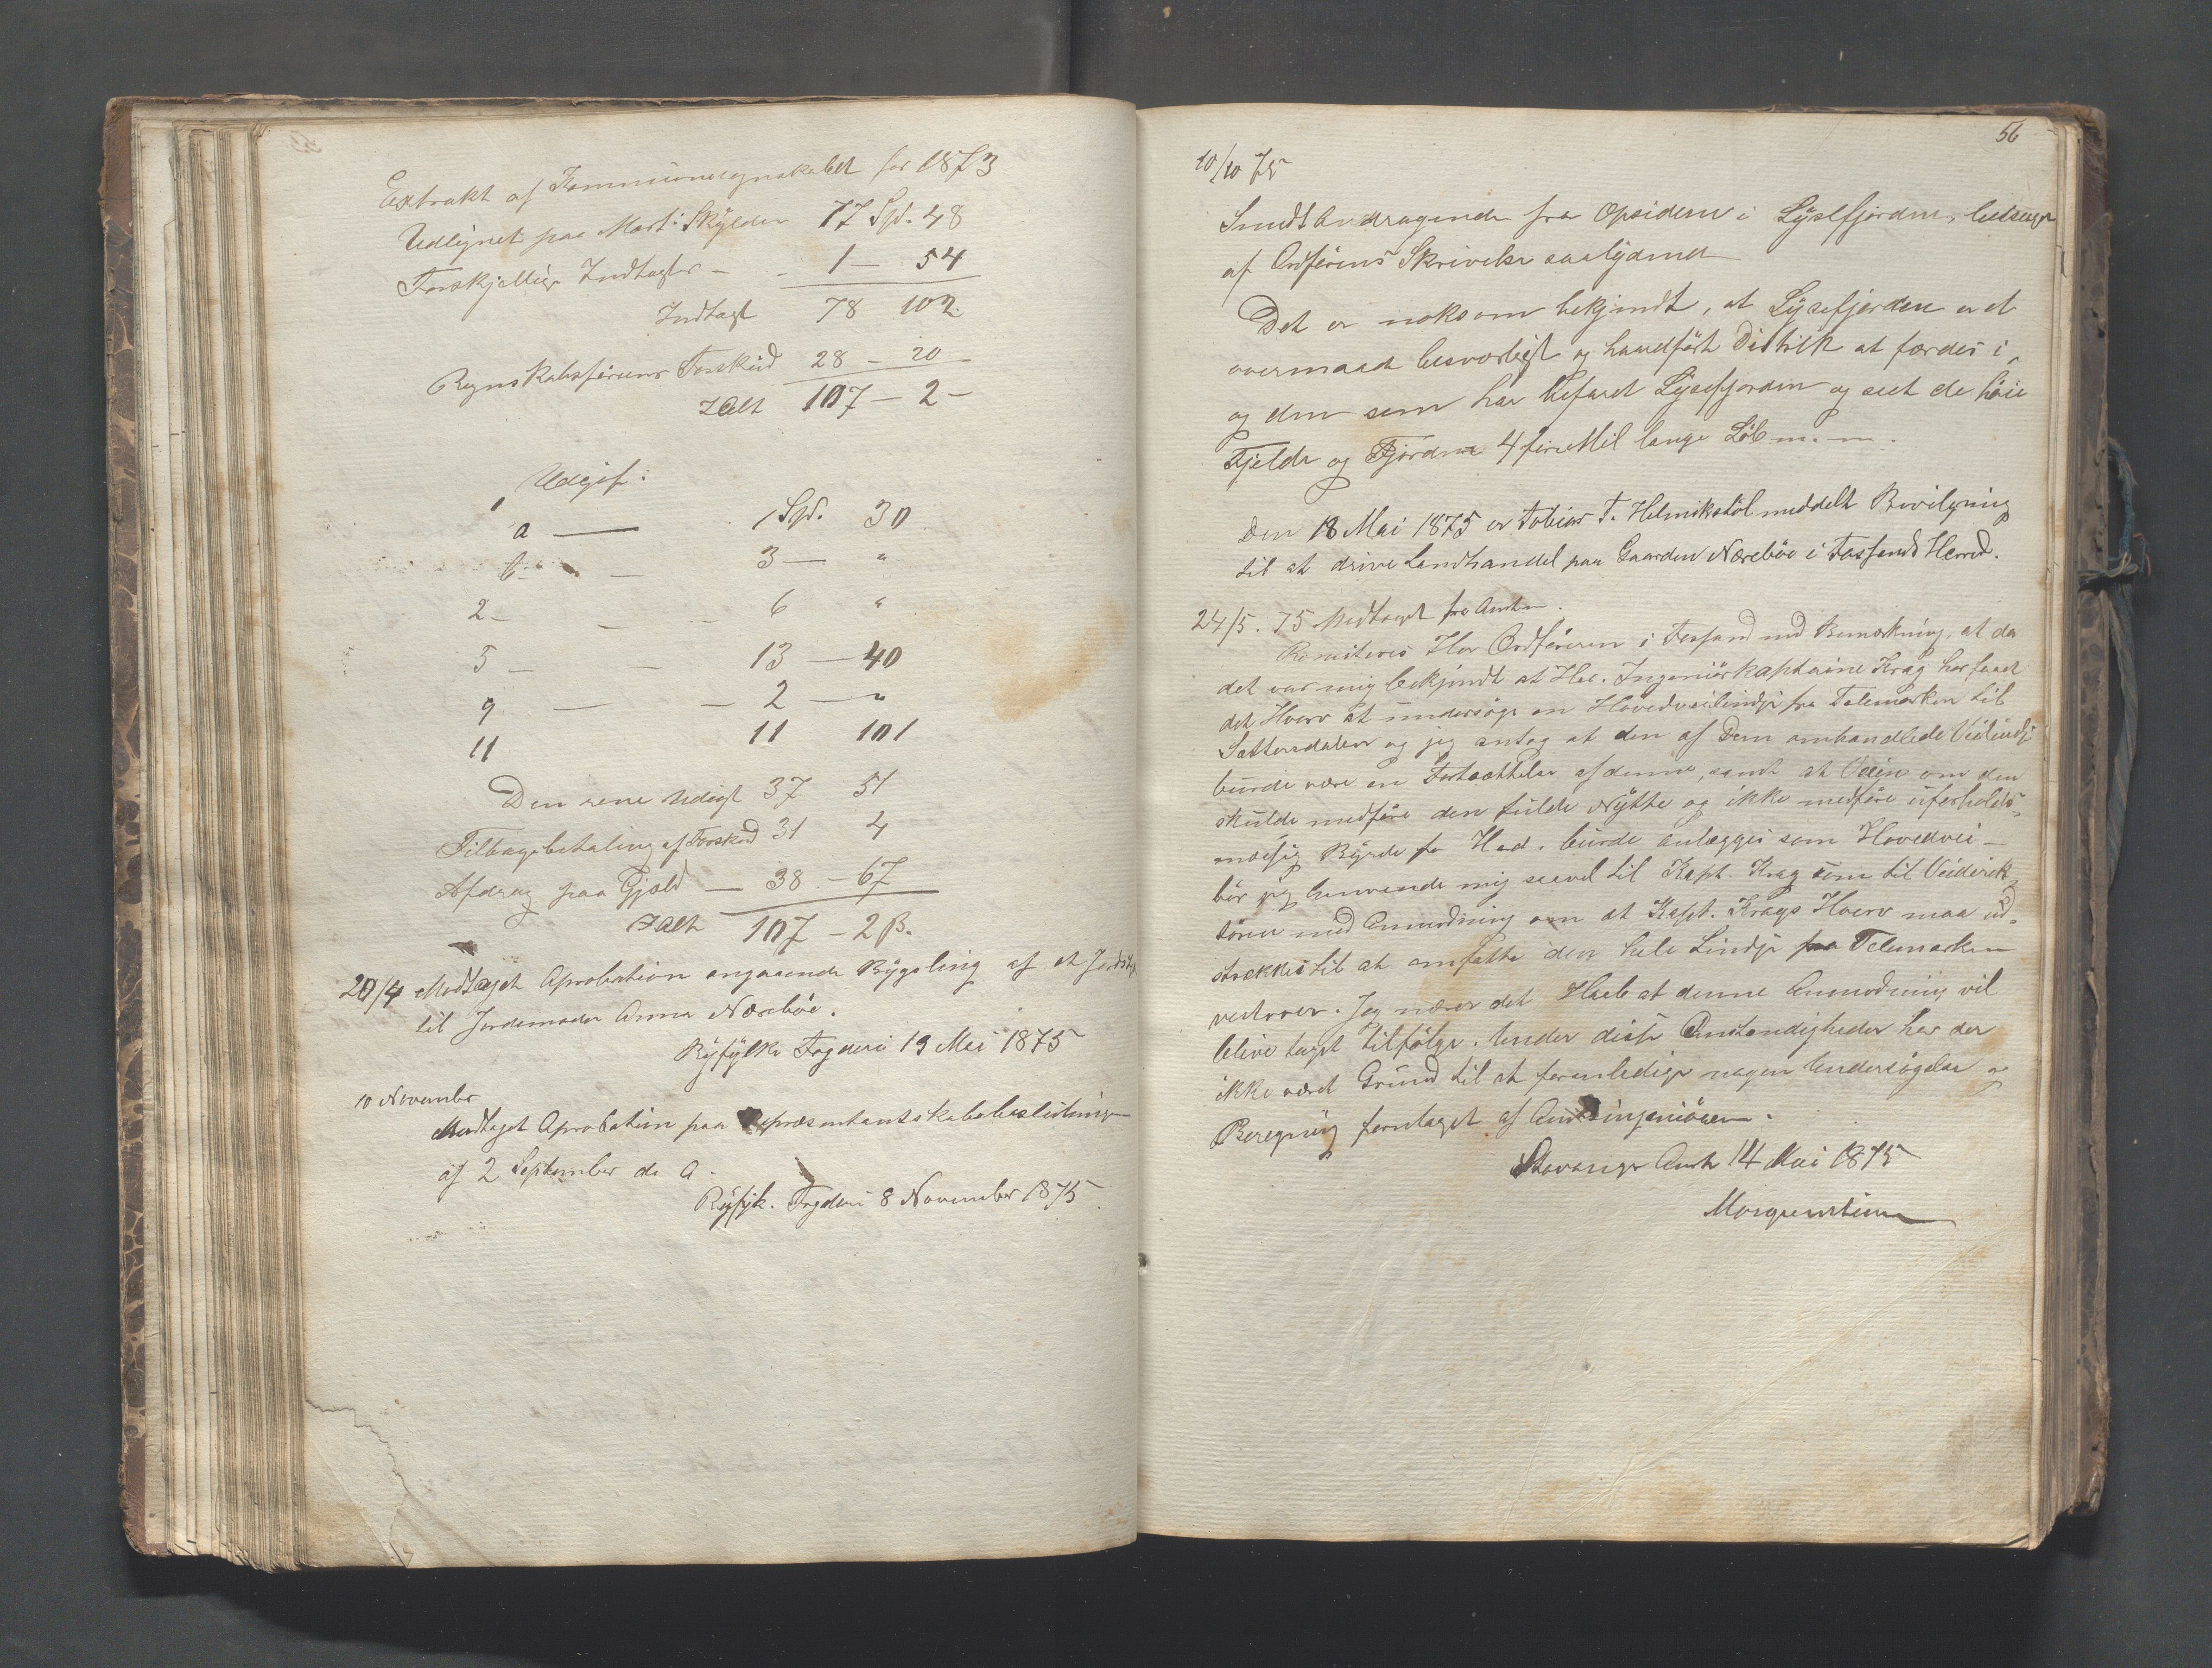 Extrakt af Kommuneregnskabet for 1873
Udlignet paa Mart: Skylden 77 Spd. 48
Forskjellige Indtægter - - 1 - 54
Indtægt 78 102.
Regnskabsførerens Forskud 28 - 20 -
Ialt 107 - 2 -
Udgift:
a — 1 Spd. 30
b - - 3 - "
2 - - - 6 "
5 - - 13 - 40
9 - - 2 - "
11 11 101
Den rene Udgift 37 51
Tilbagebetaling af Forskud 31 4
Afdrag paa Gjæld - 38 - 67
Ialt 107 - 2 β.
20/4 Modtaget Aprobation angaaende Bygsling af et Jordstyk
til Jordemoder Anna Nærebøe.
Ryfylke Fogderi 19 Mai 1875
10 November
Modtaget Aprobation paa Repræsentantskabsbeslutninger
af 2 September d. A.
Ryfylk. Fogderi 8 November 1875.
56
10/10 75
Sendt Andragende fra Opsidderne i Lysefjorden, ledsaget
af Ordførerens Skrivelse saalydende
Det er noksom bekjendt, at Lysefjorden er et
overmaade besværligt og haardført Distrik at færdes i,
og den som har befaret Lysefjorden og seet de høie
Fjelde og Fjordens 4 fire Mil lange Løb m. m.
Den 18 Mai 1875 er Tobias T. Helmikstøl meddelt Bevilgning
til at drive Landhandel paa Gaarden Nærebøe i Fossands Herred.
24/5. 75 Modtaget fra Amtm.
Remiteres Hr Ordføreren i Fossand med Bemærkning, at da
det var mig bekjendt at Hr. Ingeniørkaptaine Krag har faaet
det Hverv at undersøge en Hovedveilindje fra Telemarken til
Sættersdalen og jeg antog at den af Dem omhandlede Veilindje
burde være en Fortsættelse af denne, samt at Veien om den
skulde medføre den fulde Nytte og ikke medføre uforholds-
mæsig Byrde for Hed. burde anlægges som Hovedvei -
bør jeg henvende mig saavel til Kapt. Krag som til Veidirek-
tøren med Anmodning om at Kapt. Krags Hverv maa ud-
strækkes til at omfatte den hele Lindje fra Telemarken
vestover. Jeg nærer det Haab at denne Anmodning vil
blive taget tilfølge. Under disse Omstændigheder har der
ikke været Grund til at foranledige nogen Undersøgelse og
Beregning foretaget af Amtsingeniøren.
Stavanger Amt 14 Mai 1875
Morgenstierne